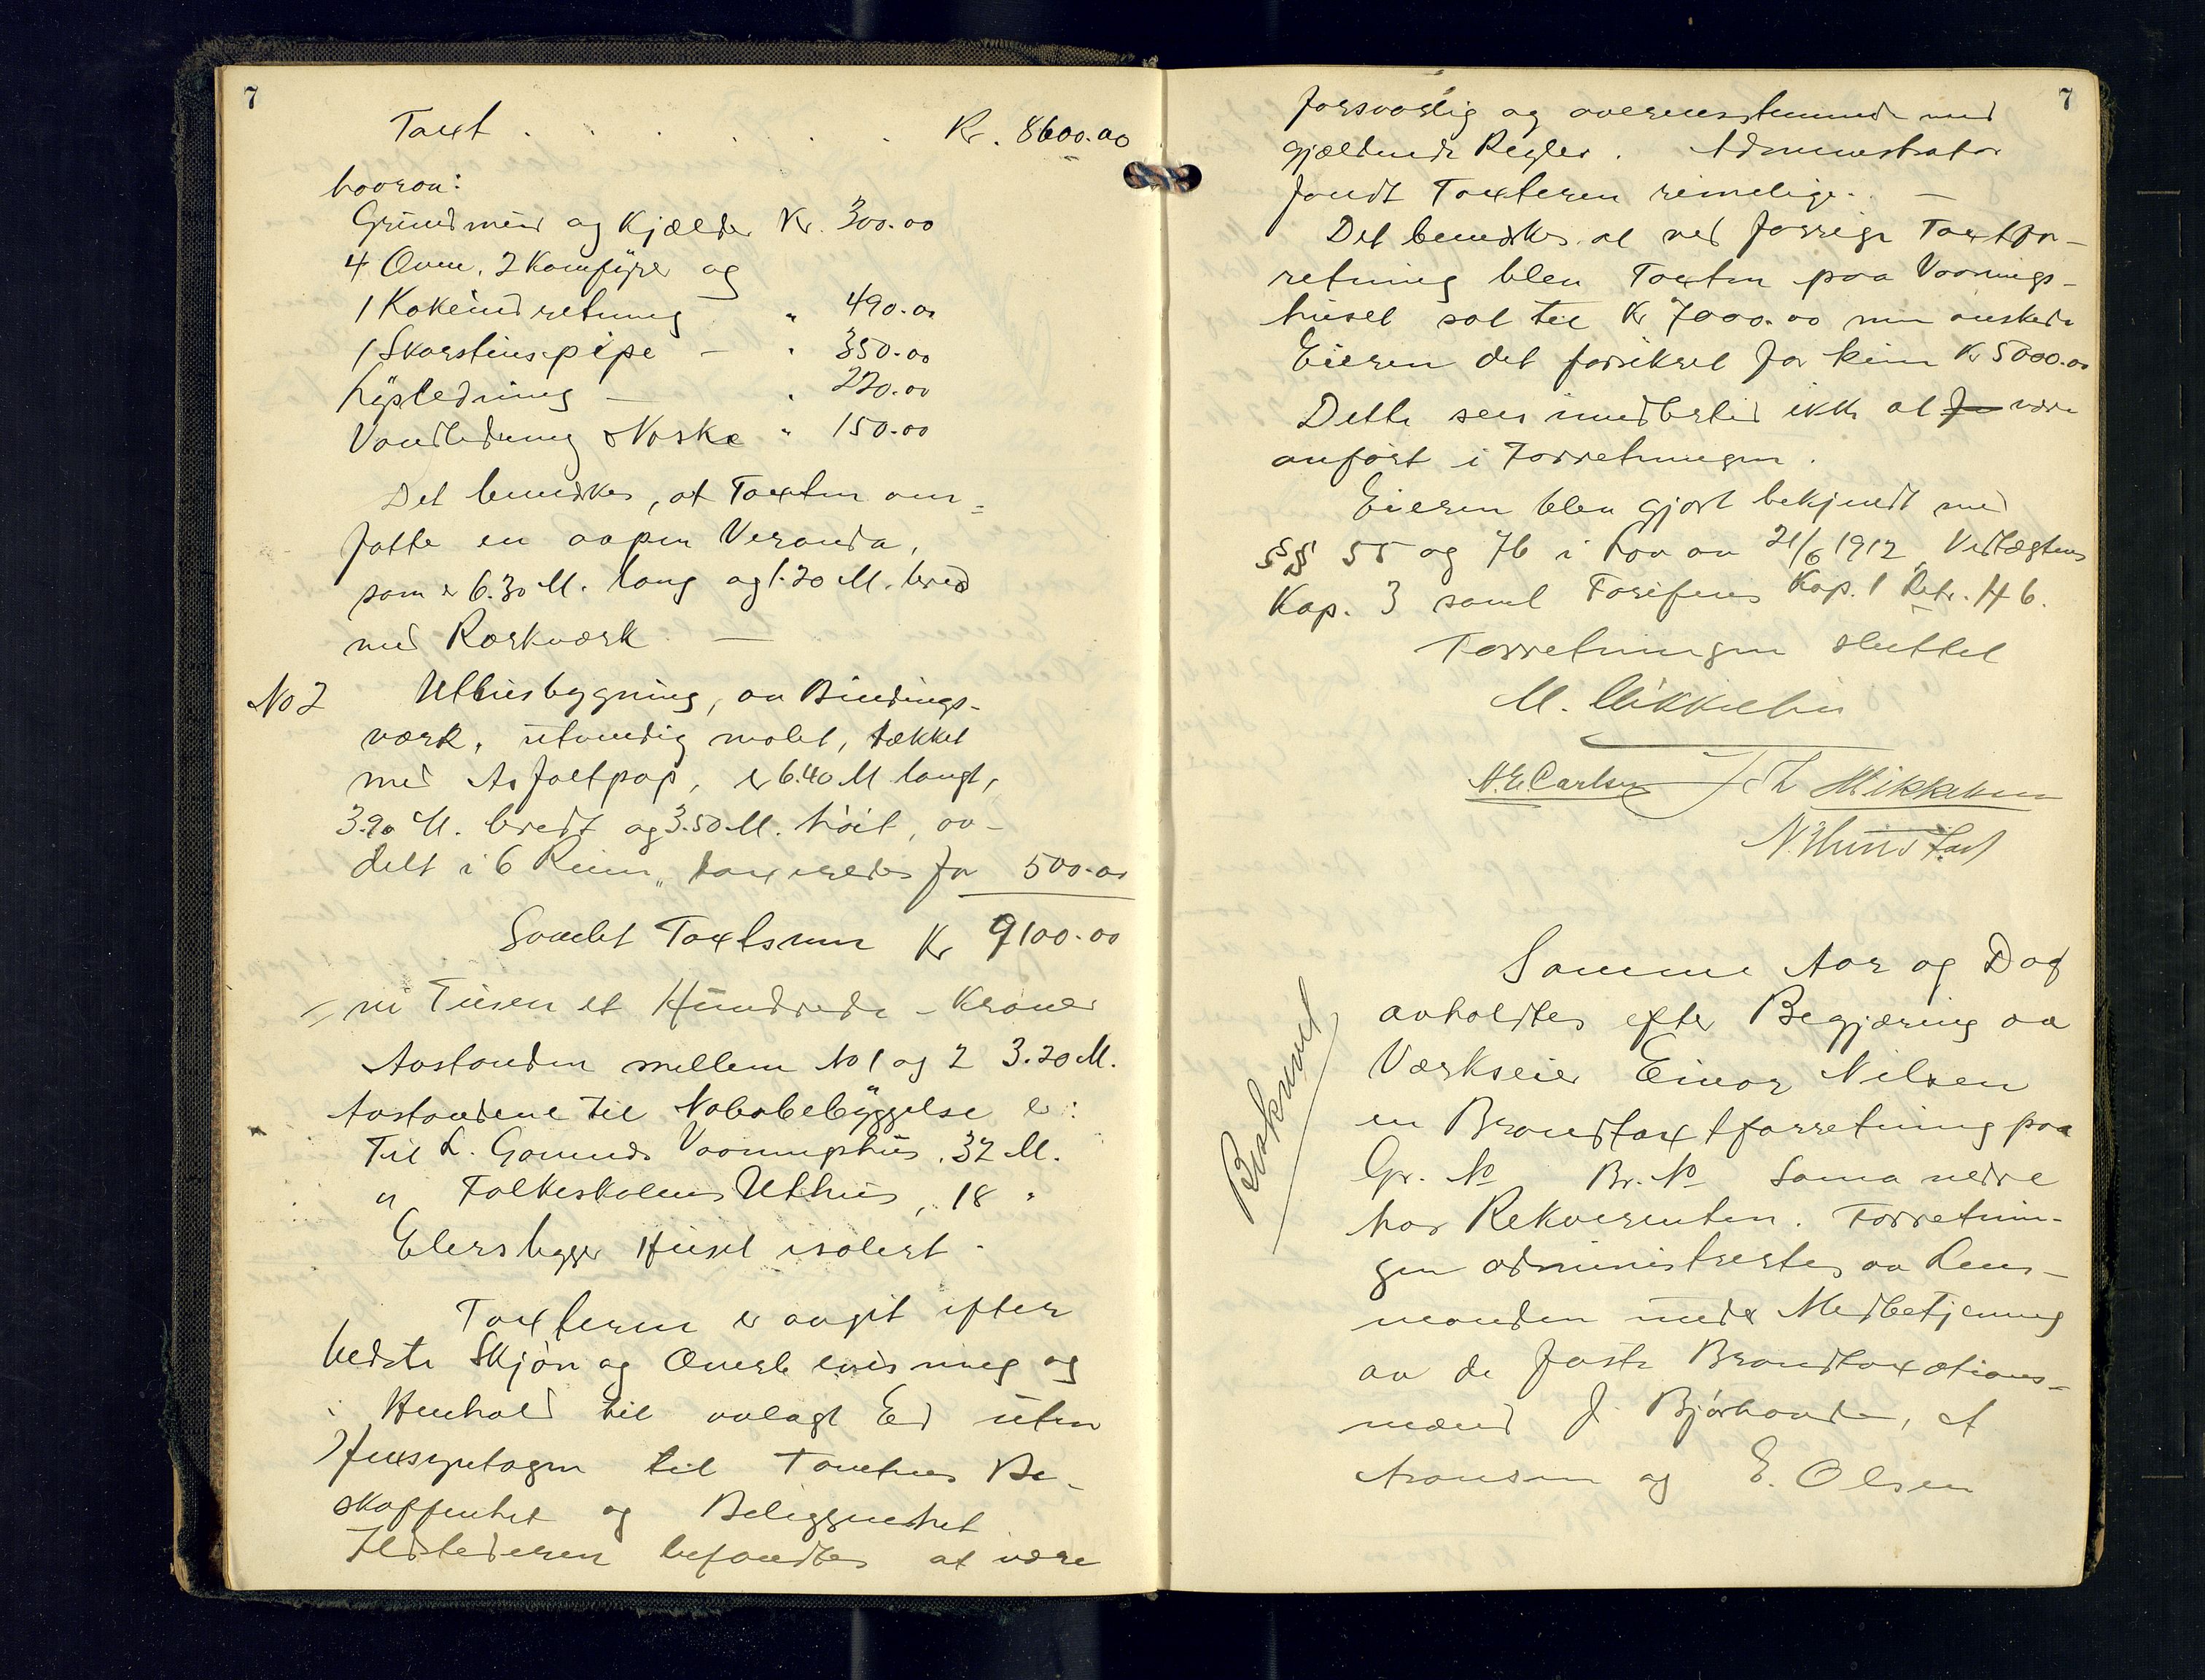 7
Taxt . . . . . . Kr. 8600.00
hvorav:
Grundmur og Kjælder Kr. 300.00
4 Ovne, 2 Komfyrer og
1 Kokeindretning " 490.00
1 Skorstenspipe — " 350.00
Lysledning — " 220.00
Vandledning & Vaske " 150.00
Det bemerkes, at Taxten om=
fatte en aapen Veranda,
som er 6.30 M. lang og 1.20 M. bred
med Rækværk —
No 2 Uthusbygning, av Bindings-
værk, utvendig malet, tækket
med Asfaltpap, er 6.40 M langt,
3.90 M. bredt og 3.50 M. høit, av-
delt i 6 Rum, taxeredes for 500.00
Samlet Taxtsum Kr 9100.00
ni Tusen et Hundrede - Kroner
Avstanden mellem No 1 og 2 3.20 M.
Avstandene til Nabobebyggelse er:
Til L. Gamnds Vaaningshus, 32 M.
" Folkeskolens Uthus, 18 "
Ellers ligger Huset isolert.
Taxterne er avgit efter
bedste Skjøn og Overbevisning og
i Henhold til avlagt Ed uten
Hensyntagen til Tomtens Be-
skaffenhet og Beliggenhet
Ildstederen befandtes at være
7
forsvarlig og overensstemmende med
gjældende Regler. Administrator
fandt Taxteren rimelige. —
Det bemerkes at ved forrige Taxtfor-
retning blev Taxten paa Vaanings-
huset sat til Kr 7000.00 men ønskede
Eieren det forsikret for kun Kr 5000.00
Dette sees imidlertid ikke at være
anført i Forretningen.
Eieren blev gjort bekjendt med
§§ 55 og 76 i Lov av 21/6 1912, Vedtægtens
Kap. 3 samt Tarifens Kap. 1 Litr. H 6.
Forretningen sluttet
M. Mikkelsen
A. E. Carlsen Mikkelsen
N. Hunstad
Beskrevet
Samme Aar og Dag
avholdtes efter Begjæring av
Værkseier Einar Nilsen
en Brandtaxtforretning paa
Gr. No Br. No Sama nedre
hos Rekvirenten. Forretnin-
gen administrertes av Lens-
manden under Medbetjening
av de faste Brandtaxations-
mænd J. Bjørhovde, A
Aronsen og E. Olsen